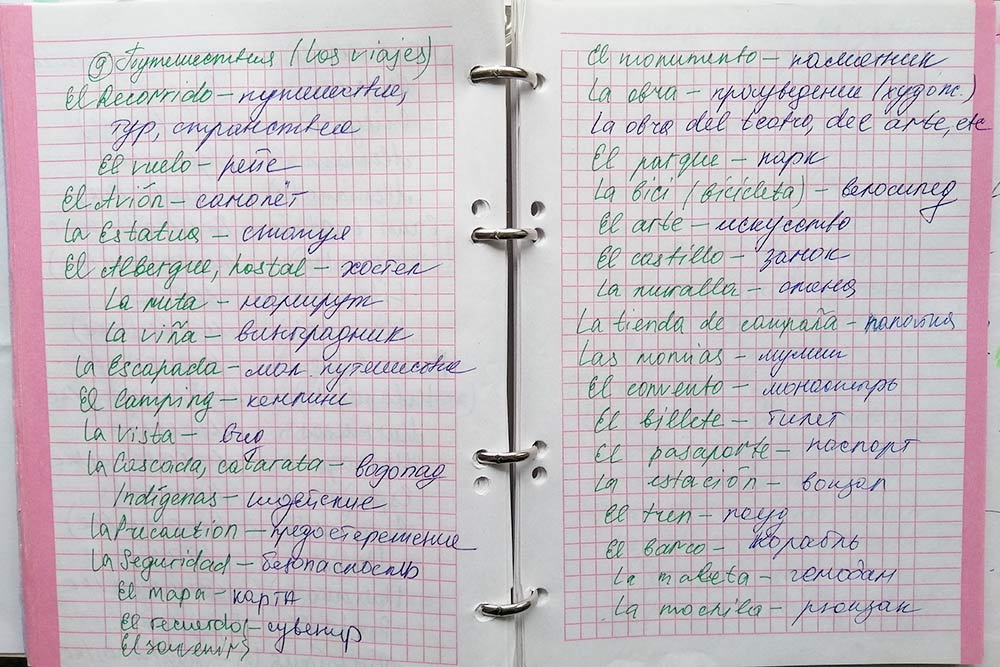 9) Путешествия (Los viajes)
El Recorrido – путешествие,
тур, странствие
El vuelo – рейс
El Avión – самолёт
La Estatua – статуя
El Albergue, hostal – хостел
La ruta – маршрут
La viña – виноградник
La Escapada – мал. путешествие
El Camping – кемпинг
La Vista – вид
La Cascada, catarata – водопад
Indígenas – индейские
La Precaución – предостережение
La Seguridad – безопасность
El mapa – карта
El recuerdo – сувенир
El souvenir
El monumento – памятник
La obra – произведение (худож.)
La obra del teatro, del arte, etc
El parque – парк
La bici (bicicleta) – велосипед
El arte – искусство
El castillo – замок
La muralla – стена
La tienda de campaña – палатка
Las momias – мумии
El convento – монастырь
El billete – билет
El pasaporte – паспорт
La estación – вокзал
El tren – поезд
El barco – корабль
La maleta – чемодан
La mochila – рюкзак